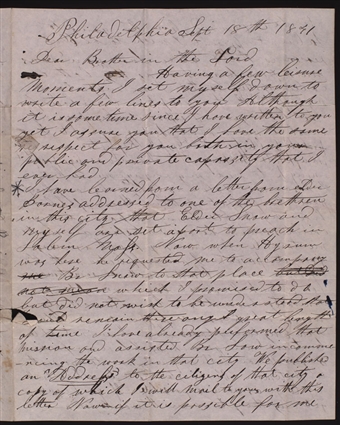 Philadelphia Sept 18th 1841
Dear Brother in the Lord
Having a few leisure
moments I set myself down to
write a few lines to you Although
it is some time since I have written to you
yet I assure you that I have the same
respect for you both in your
public and private capacity that I
ever had
I have learned from a letter from Dr
addressed to one of the brethren
in this city that Elder Snow and
myself are set apart to preach in
Salem Mass. Now when Hyrum
was here he requested me to accompany
Br Snow to that place
which I promised to do
but did not wish to be understood that
I remain there any great length
of time I have already performed that
mission and assisted Br Snow in commen
cing the work in that city We published
an Address to the citizens of that city a
copy of which I will mail to you with this
letter Now if it is possible for me